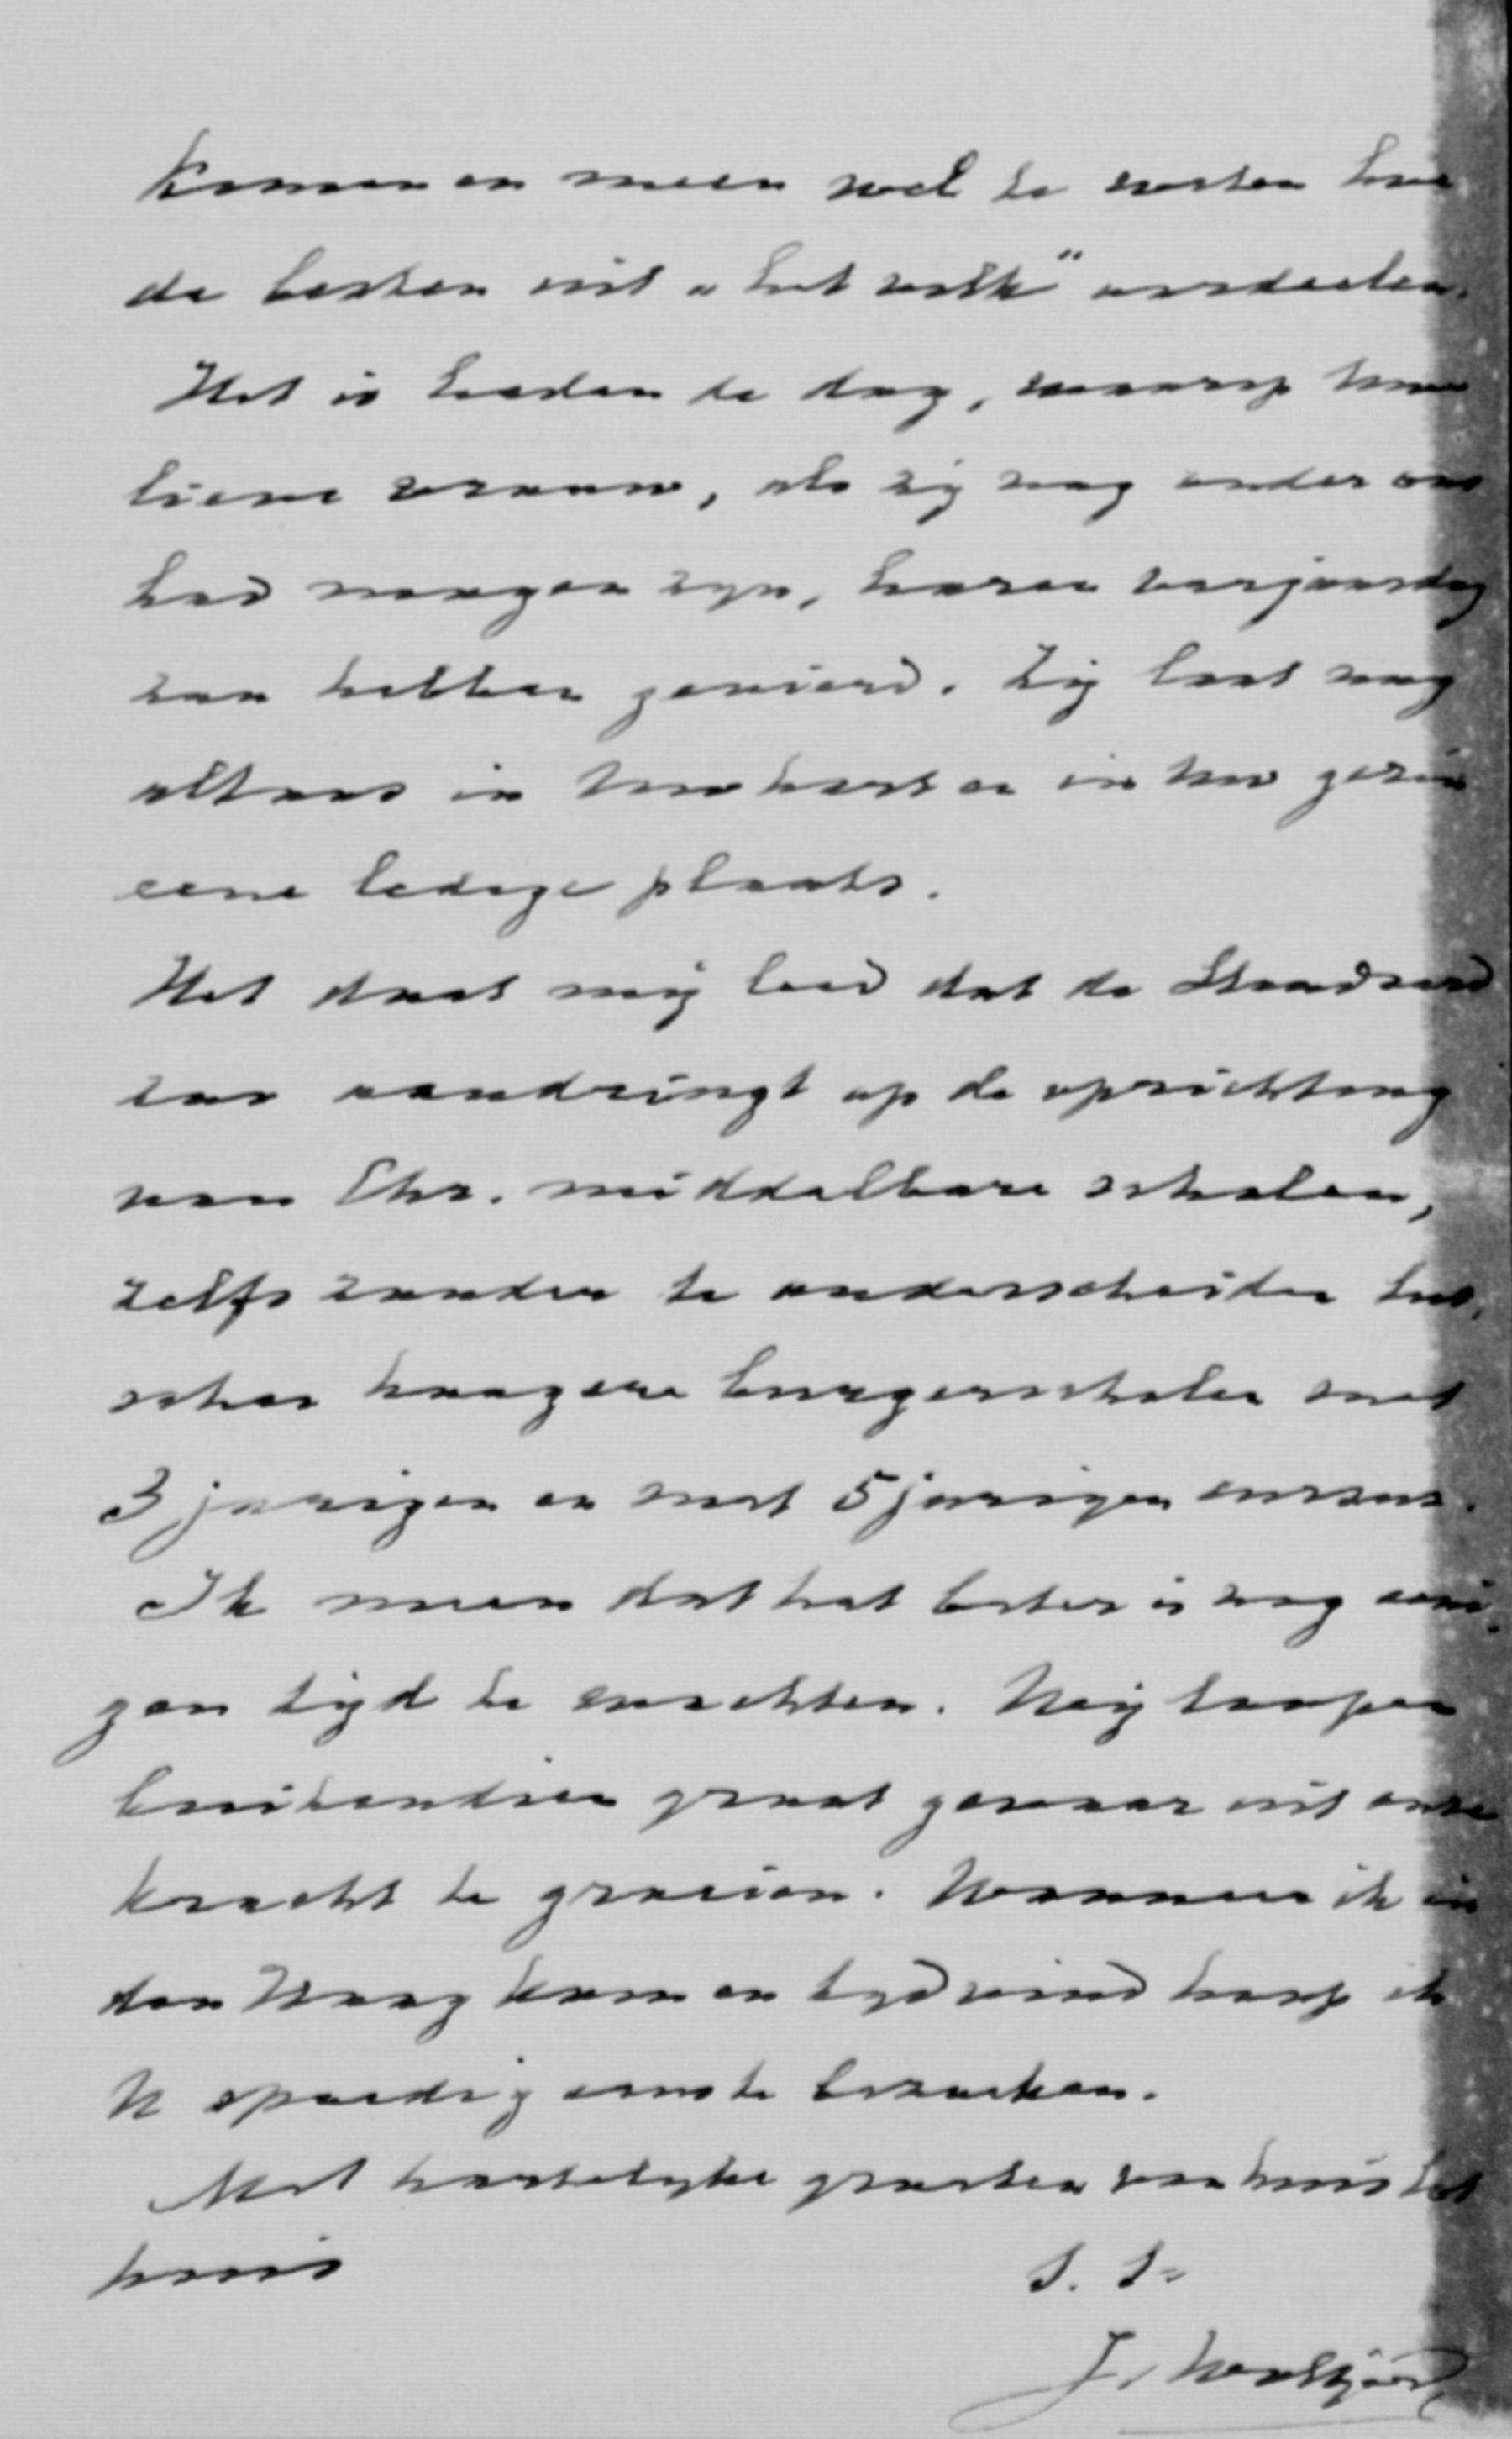 komen en meen wel te weten hoe
de besten uit „het volk" oordeelen.
Het is heden de dag, waarop Uwe
lieve vrouw, als zij nog onder ons
had mogen zyn, haren verjaardag
zou hebben gevierd. Zij laat nog
altoos in Uw hart en in Uw gezin
eene ledige plaats.
Het doet mij leed dat de Standaard
zoo aandringt op de oprichting
van Chr. middelbare scholen,
zelfs zonder te onderscheiden tus,
schen hoogere burgerscholen met
3 jarigen en met 5 jarigen cursus.
Ik meen dat het beter is nog eeni,
gen tyd te wachten. Wij loopen
bovendien groot gevaar uit onze
kracht te groeien. Wanneer ik in
den Haag kom en tyd vind hoop ik
U spoedig eens te bezoeken.
Met hartelyke groeten van huis tot
huis
t. t.
J.